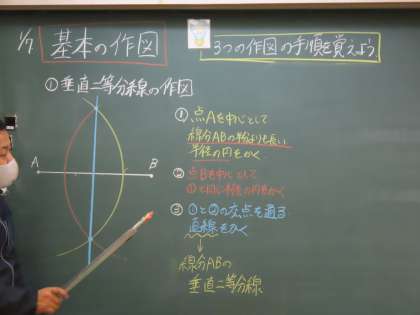 1/7 基本の作図
3つの作図の手順を覚えよう
①垂直二等分線の作図
A
B
① 点Aを中心として
線分ABの半分よりも長い
半径の円をかく
② 点Bを中心として
①と同じ半径の円をかく
③ ①と②の交点を通る
直線をかく
線分ABの
垂直二等分線